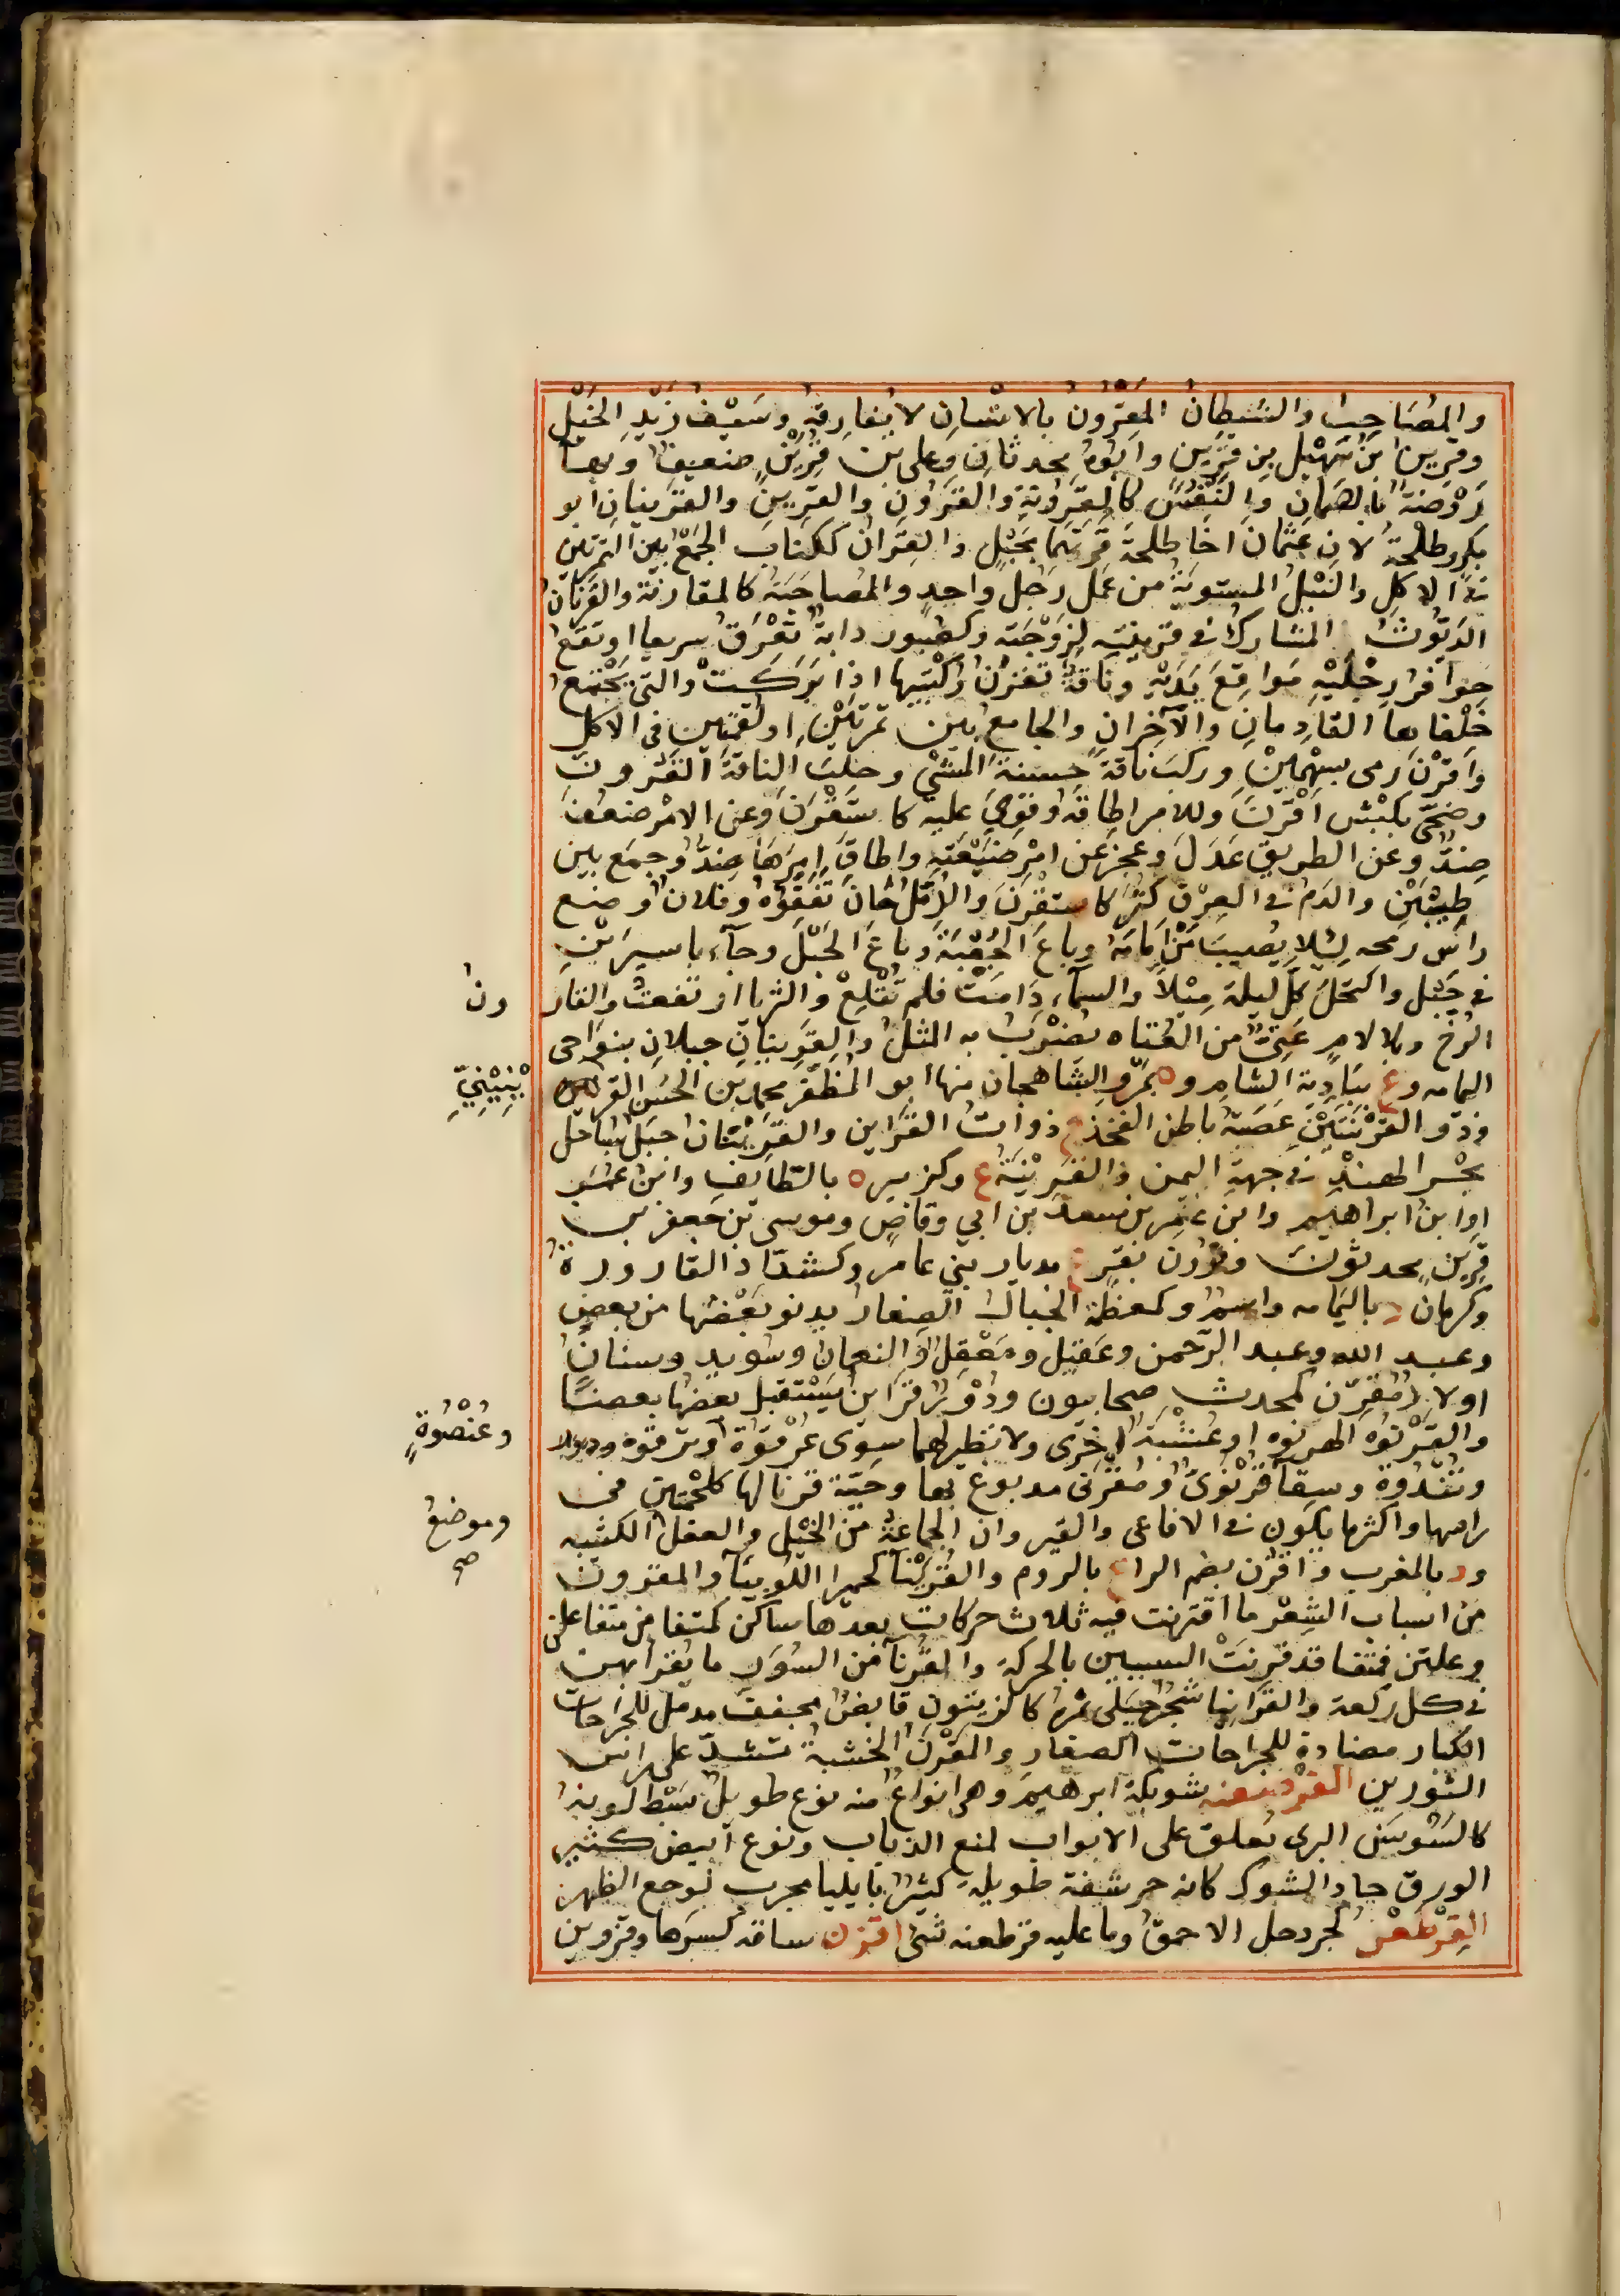 والمُصَاحِبُ والشيطانُ المقرونُ بالانسانِ لا يُفارِقه وسَيْفُ زَيْدِ الخَيْلِ
وقرينُ بنُ سُهَيْلِ بنِ قَرِينٍ وابُوه محدثانِ وعلى بن قَرِينٍ ضعيفٌ وبهاءٍ
رَوْضَةٌ بالصَّمانِ والنَّفْسُ كالقَرُونَةِ والقَرُونِ والقَرِينِ والقرينانِ ابو
بكرٍ وطلحةُ لان عثمانَ اخا طلحةَ قَرَنَهُما بحَبْلٍ والقِرانُ ككتابٍ الجَمْعُ بين التمرتين
فى الاكلِ والنَّبْلُ المستويةُ من عَمَلِ رَجُلٍ واحدٍ والمُصاحَبَةُ كالمقارنة والقَرْنانُ
الدَّيُّوثُ المشاركُ فى قرينته لِزَوْجَته وكصَبور دابةٌ تَعْرَقُ سريعا او تَقَعُ
حوافرُ رِجْلَيْهِ مَواقِعَ يَدَيْهِ وناقةٌ تقرُنُ رُكْبتيها اذا بَرَكَتْ والتى يَجْتَمِعُ
خِلْفاها القادِمانِ والآخِرانِ والجامعُ بين تَمْرَتَيْنِ او لقمتين فى الاكل
واَقْرَنَ رمى بسَهْمَيْنِ وركبَ ناقةً حسنةَ المَشْىِ وحلبَ الناقةَ القَرونَ
وضَحَّى بكَبْشٍ اَقْرَنَ وللامر اطاقه وقَوِىَ عليه كاستَقْرَنَ وعن الامْرِ ضعُفَ
ضِدٌّ وعن الطريق عَدَلَ وعجز عن امْرِ ضَيْعَتِهِ واطاقَ امرَها ضِدٌّ وجمَع بين
رطبتَيْن والدَمُ فى العِرْقِ كثُرَ كاستقْرَنَ والدُّمَّلُ حانَ تفَقُّؤُه وفلانٌ رفع
راسَ رمحه لئلا يُصيبَ مَنْ اَمامَهُ وباعَ الجُعْبَةَ وباعَ الحَبْلَ وجاء باسيرَيْنِ
فى حَبْلٍ واكتحلَ كلَّ ليلة مِيْلاً والسماءُ دَامَتْ فلم تُقْلِعْ والثريا ارتفعتْ والقار
ونُ
الوَجُّ وبلا لامٍ عَتِىٌّ من العُتاه يضْرَبُ به المثلُ والقَرِينَيْنِ جبلانِ بنواحى
اليمامه وع ببَادِيَةِ الشام وة بمَرْوِ الشاهجان منها ابو المُظَفَّر محمد بن الحَسَن القر
يْنِيْنِيُّ
وذو القَرْنَيْنِ عَصَبَةُ باطنِ الفخذ ج ذواتُ القَرائن والقَرِينَتانِ جبَلٌ بساحل
بحْر الهند فى جهة اليمن والقَرِيْنَةُ ع وكزبير ة بالطائف وابنُ عمَر
او ابنُ ابراهيم وابن عامر بن سعد بن ابي وقاصٍ وموسى بن جعفر بن
قُرَيْنٍ محدثون وقرون بقر ع بديار بني عامر وكشدّادٍ القارورة
وكرمان د باليمامه واسم وكمعظمة الجبالُ الصغارُ يدنو بعْضُها من بعض
وعبد الله وعبد الرحمن وعَقيل ومَعْقِل والنعمان وسُوَيد وسنانٌ
اولادُ مُقَرِّن كمحدث صحابيون ودُوْرٌ قَرائنُ يسْتقبل بعضُها بعضًا
والقَرْنُوه الهرنوه او عُشْبَةٌ اخرى ولا نظيرلهما سِوى عَرْقُوَة وترقوه
وعُنْصُوَةٍ
وثُنْدُوة وسِقاءٌ قَرْنَوِىٌّ ومُقَرْنى مدبوغ بها وحيّة قرنا لها كلحمتين فى
راسها واكثر ما يكون فى الافاعى والقيروان الجماعة من الخيْل والقفل الكتيبه
وموضعُ
صح
ود بالمغرب واقرُن بضم الراء ع بالروم والقُرَيْناء كحميراء اللُّوبِيَاء والمقرون
مِن اسباب الشِعْر ما اقترنت فيه ثلاث حركات بعدها ساكن كمتفا من متفاعلن
وعلتن فمتفا قد قرنَتِ السببين بالحركة والقُرَناءُ من السُوَرِ ما يقرأُ بهن
فى كل ركعة والقَرانيا شجر جَبَلى ثمره كالزيتون قابضٌ مجفف مدمّل للجراحات
الكبار مضادة للجراحات الصغار والمِقْرَنُ الخشبة تشدّ على راس
الثورين القرصعنه شويكة ابرهيم وهى انواعٌ منه نوع طويلٌ سَبْط لوينهُ
كالسَّوْسَن البرى يُعلق على الابواب لمنع الذباب ونوع ابيض كثير
الورق جاد الشوك كانه حرشفة طويلة كثيرٌ بايليا مجرب لوجع الظهر
القِرْطَعْنُ كجردحل الاحمقُ وما عليه قرطعنه شئ اقزن ساقه كسَرها وقزوين